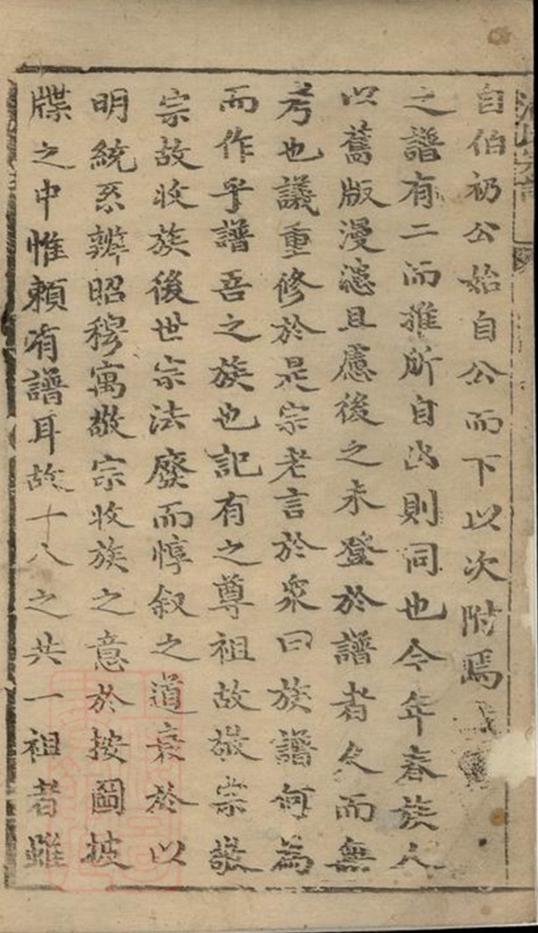 自伯礽公始自公而下以次附焉
之譜有二而推所自出則同也今年春族人
以舊版漫漶且慮後之未登於譜者久而無
考也議重修於是宗老言於衆曰族譜何為
而作乎譜吾之族也記有之尊祖故敬宗敬
宗故收族後世宗法廢而惇叙之道衰於以
明統系辨昭穆寓敬宗收族之意於按圖披
牒之中惟頼有譜耳故十八之共一祖者雖